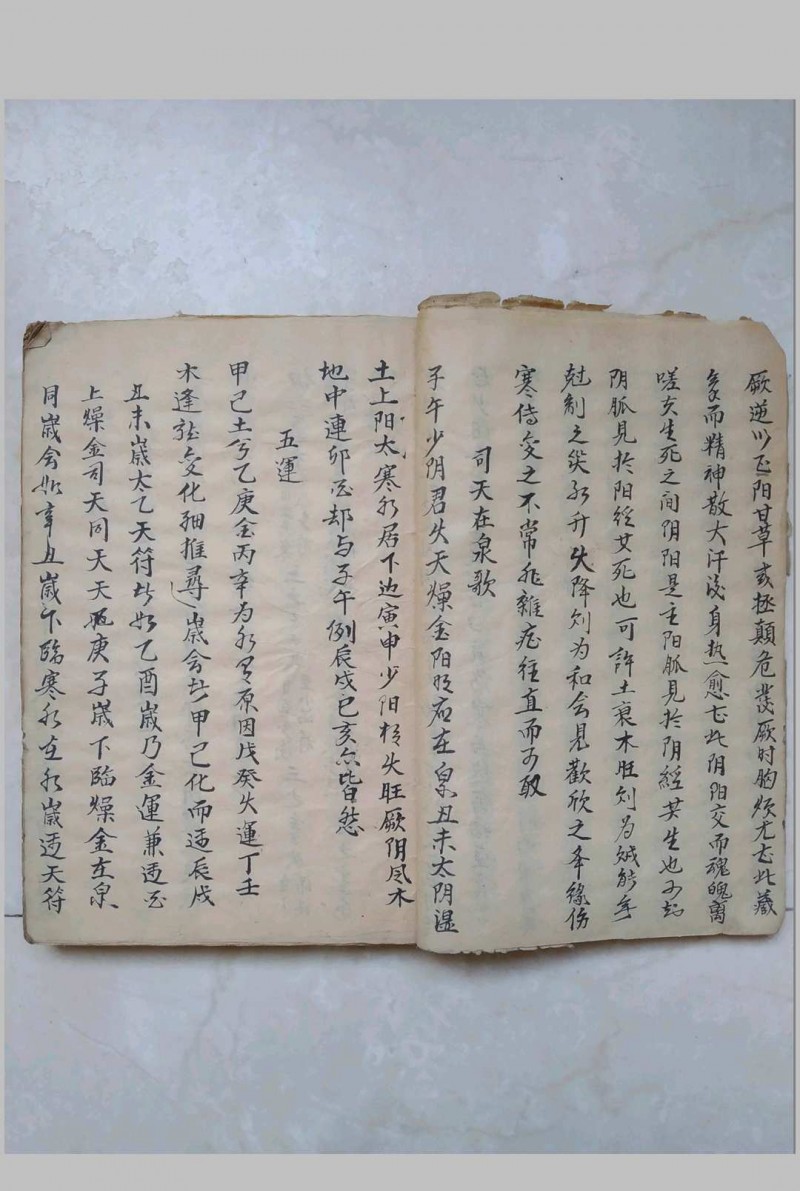 厥逆
阳甘草或拯颠危发厥时胸烦尤
此藏
而精神散大汗没身热愈
此阴阳交而魂魄离
嗟
生死之间阴阳是主阳脉见於阴经其生也可
阴脉见於阳经其死也可許土衰木旺则为贼
尅制之
升火降则为和会见歡欣之
缘伤
寒传变之不常非雜症径直而可取
司天在泉歌
子午少阴君火天燥金阳明右在泉丑未太阴湿
土上阳太寒水居下边寅申少阳相火旺厥阴风木
地中連卯酉却与子午例辰戌巳亥亦皆然
五運
甲己土兮乙庚金丙辛为水有原因戊癸火運丁壬
木逢玆变化细推尋歲会甲己化而遇辰戌
丑未歲太乙天符
如乙酉歲乃金運兼遇酉
上燥金司天同天天
庚子歲下臨燥金在泉
同歲会如辛丑歲下臨寒水在水歲遇天符